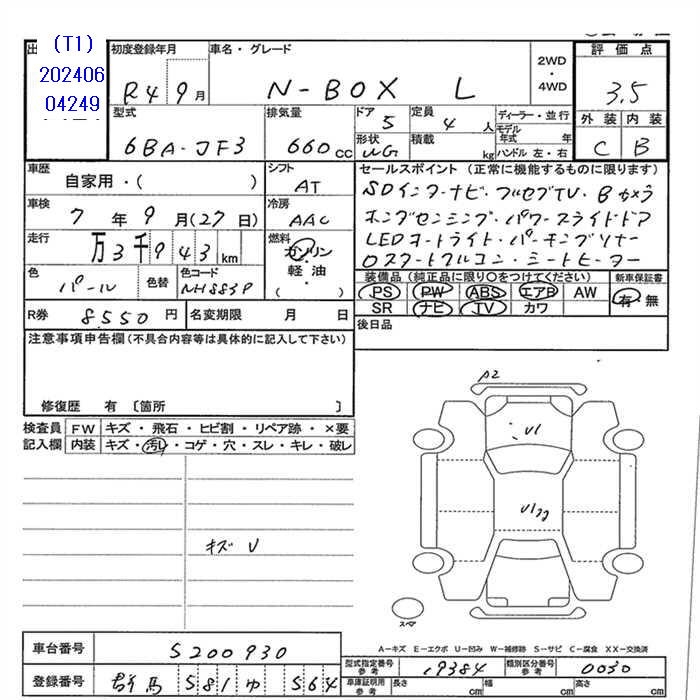 (T1)
202406
04249
初度登録年月
R4 9月
車名・グレード
N-BOX L
2WD
・
4WD
評価点
3.5
外装 内装
C B
型式
6BA-JF3
排気量
660cc
ドア
5
形状
定員
4人
積載
kg
ディーラー・並行
モデル年式 年
ハンドル 左・右
車歴
自家用・( )
シフト
AT
車検
7年9月(27日)
冷房
AAC
走行
万3千943km
燃料
ガソリン
・
軽・油
( )
色
パール
色替
色コード
NH883P
R券 8550円
名変期限 月 日
セールスポイント (正常に機能するものに限ります)
SDインターナビ・フルセグTV・Bカメラ
ホンダセンシング・パワースライドドア
LEDオートライト・パーキングソナー
装備品(純正品に限り○をつけてください)
新車保証書
PS PW ABS エアB AW
SR ナビ TV カワ
有 無
後日品
注意事項申告欄(不具合内容等は具体的に記入して下さい)
修復歴 有 〔箇所 〕
検査員 FW キズ・飛石・ヒビ割・リペア跡・×要
記入欄 内装 キズ・汚れ・コゲ・穴・スレ・キレ・破レ
キズ U
A2
U1
A-キズ E-エクボ U-凹み W-補修跡 S-サビ C-腐食 XX-交換済
車台番号 S200930
登録番号 群馬 581 ゆ 564
型式指定番号 参考 19384
類別区分番号 参考 0030
車庫証明用 参考 長さ cm 幅 cm 高さ cm